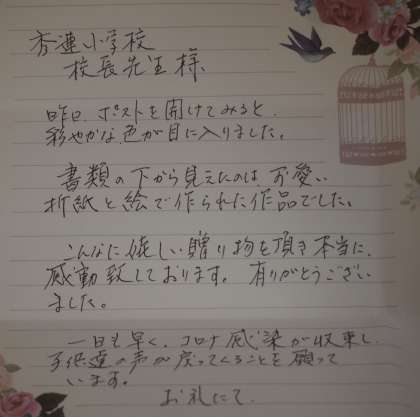 香蓮小学校
校長先生様
昨日、ポストを開けてみると
彩やかな色が目に入りました。
書類の下から見えたのは可愛い
折紙と絵で作られた作品でした。
こんなに嬉しい贈り物を頂き本当に、
感動致しております。有りがとうござい
ました。
一日も早く、コロナ感染が収束し、
子供達の声が戻ってくることを願って
います。
お礼にて